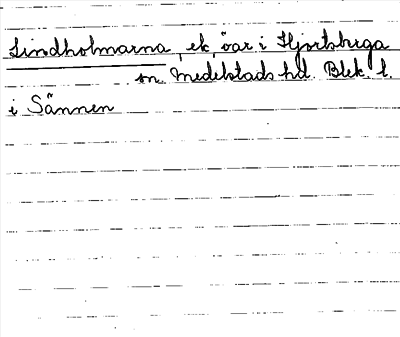 Lindholmarna, ek. öar i Hjortsberga
sn Medelstads hd. Blek. l.
i Sännen